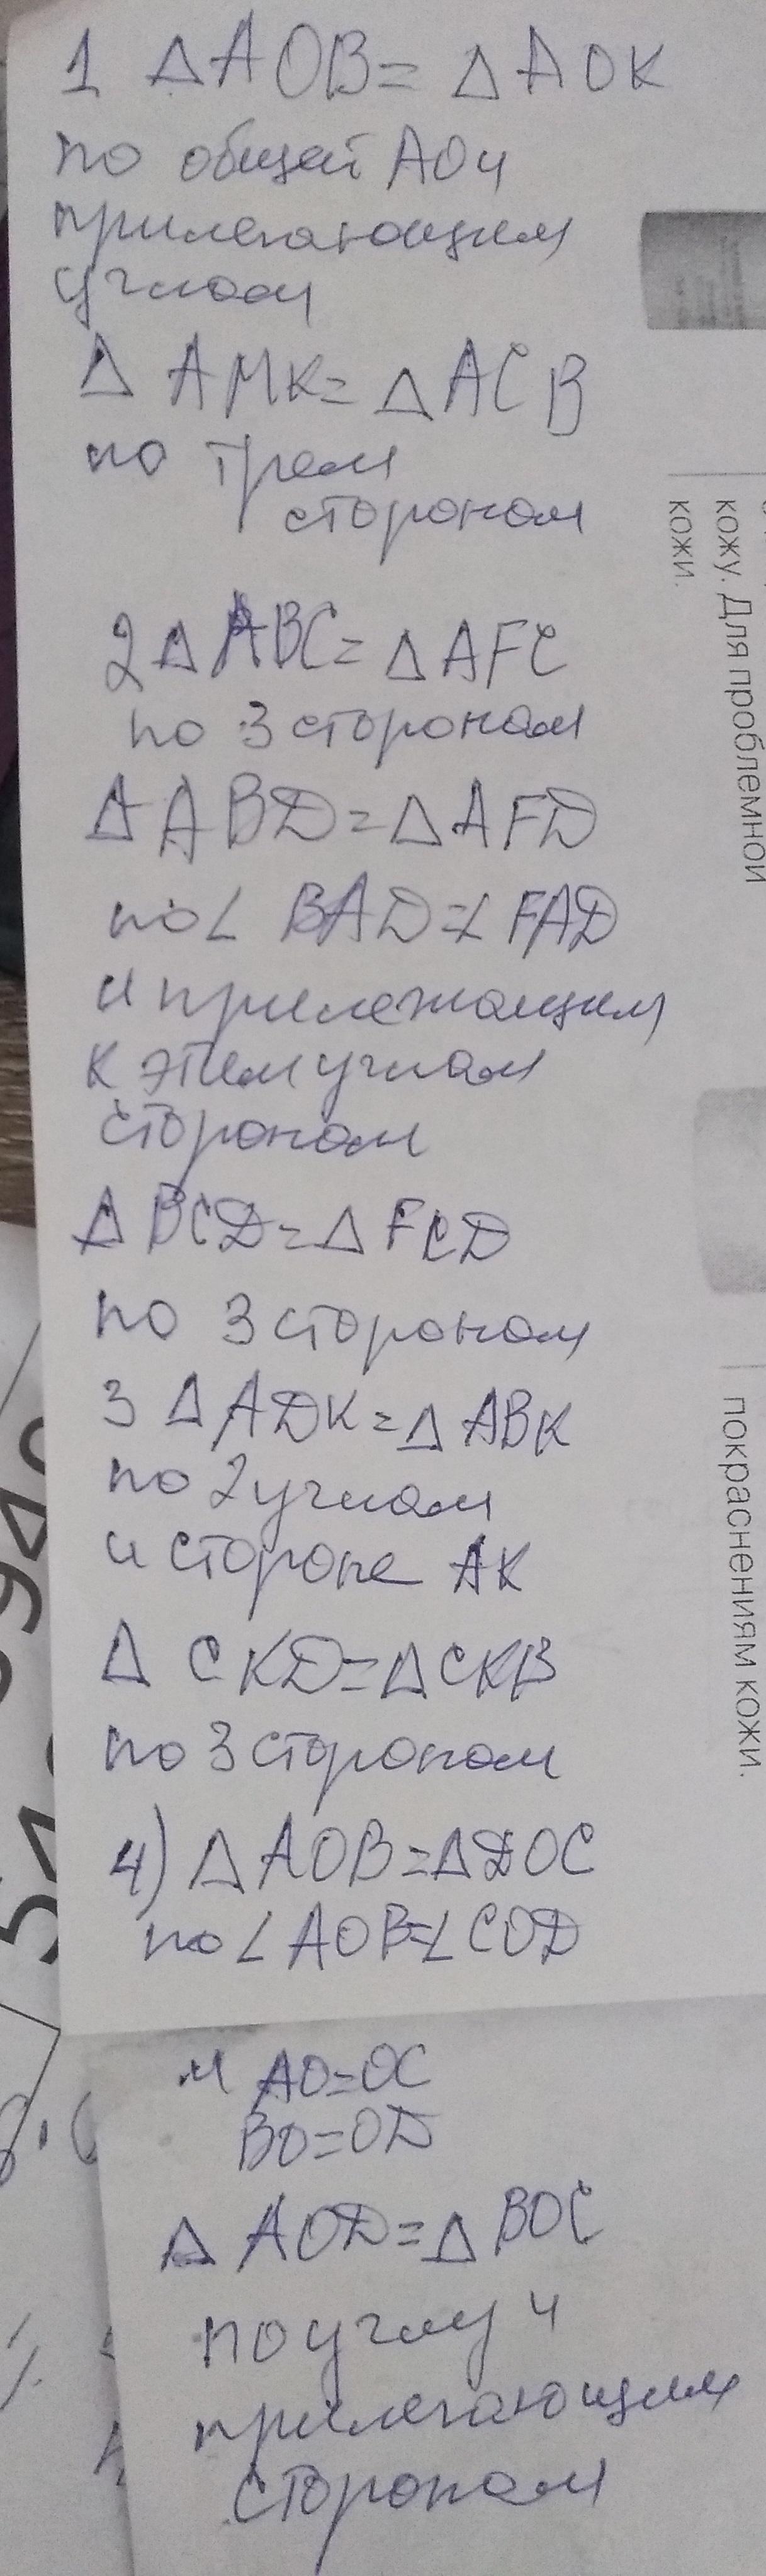 1 ΔAOB= ΔAOK
по общей AO и
прилегающим
углам
Δ AMK= ΔACB
по трем
сторонам
2 ΔABC= ΔAFC
по 3 сторонам
ΔABD=ΔAFD
по∠ BAD=∠ FAD
и прилежащим
к этим углам
сторонам
Δ BCD=Δ FCD
по 3 сторонам
3 ΔADK=Δ ABK
по 2 углам
и стороне AK
Δ CKD=ΔCKB
по 3 сторонам
4) ΔAOB=ΔDOC
по∠ AOB=∠ COD
и AO=OC
BO=OD
Δ AOD=Δ BOC
по углу и
прилегающим
сторонам
кожу. Для проблемной
кожи.
покраснениям кожи.